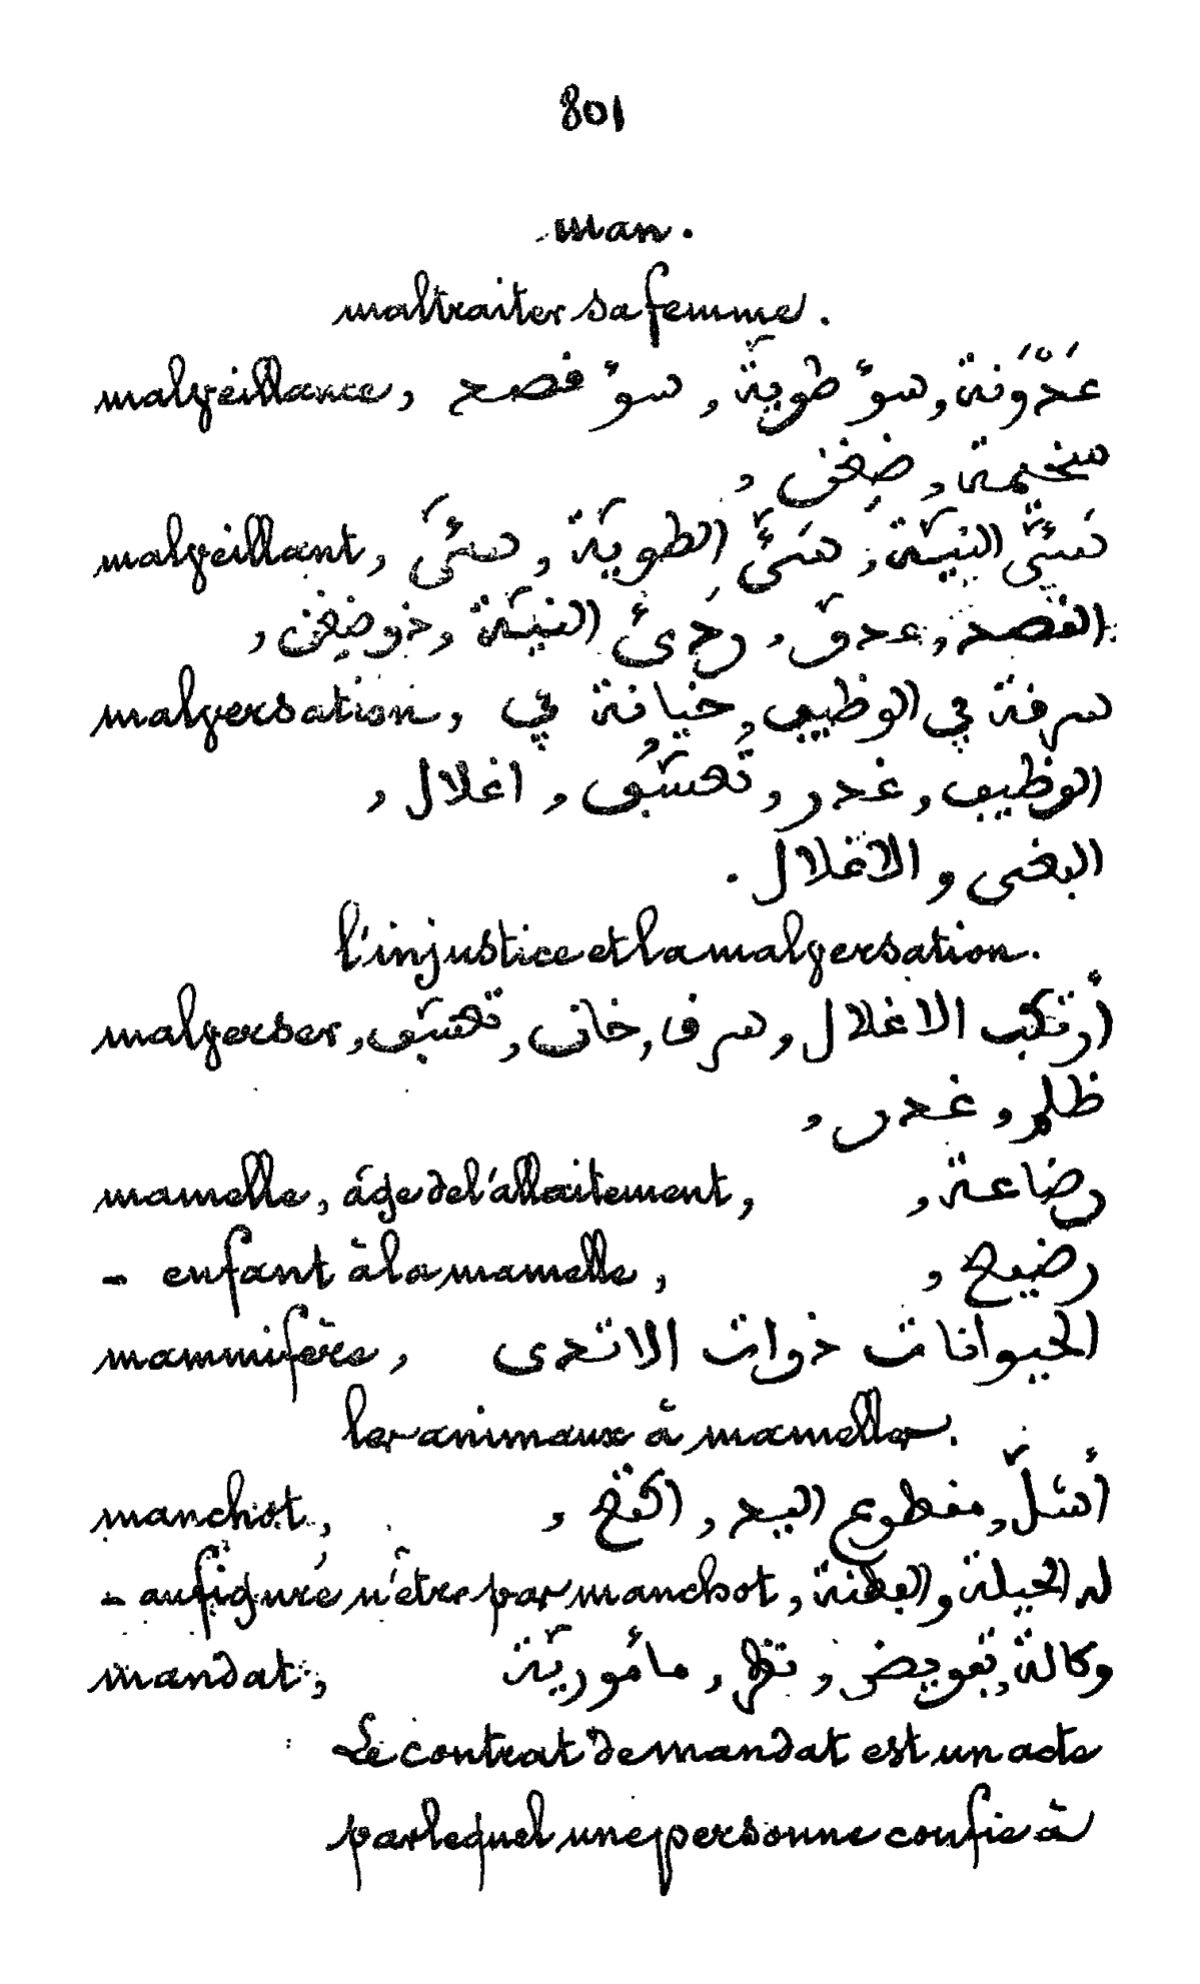 801
man.
maltraiter sa femme.
malveillance, عَدَْوَنة, سؤُ طويّة, سؤُ قصد
سخيمة, ضِغن,
malveillant, سَيّئ النيّة, سَيّئ الطويّة, سيّئ
القصد, عدوّ, ردَیُٔ النيّة, ذو ضِغن,
malversation, سرقة في الوظيف, خيانة في
الوظيف, غدر, اغلال,
البغى و الاغلال.
l'injustice et la malversation.
malverser, أرتكب الاغلال, سرق, خان,
ظلم, غدر,
mamelle, âge de l'allaitement, رضاعة,
- enfant à la mamelle, رضيع,
mammifère, الحيوانات ذوات الاثدى
les animaux à mamelles.
manchot, أشلّ, مقطوع اليد, اكتع,
- au figuré n'être par manchot, له الحيلة و الفطنة,
mandat, وكالة, تفويض, مأموريّة
Le contrat de mandat est un acte
par lequel une personne confie à